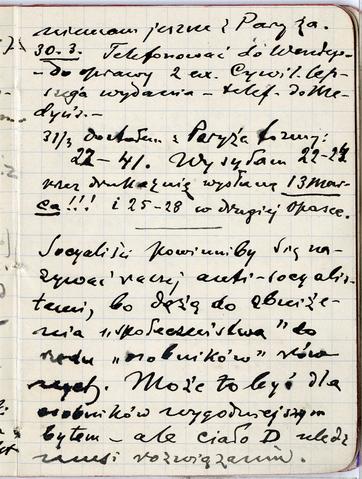 niemam jeszcze z Paryża.
30.3. Telefonować do
- do oprawy 2 ex. Cywil. lep-
szego wydania - telef. do Me-
dyńs. -
31/3 dostałem z Paryża formy:
22-41. Wysyłam 22-24
przez drukarnię wysłaną 13 mar-
ca!!! i 25-28 w drugiej opasce.
Socyaliści powinniby się na-
zywać raczej anti-socyalis-
tami, bo dążą do zbliże-
nia „społeczeństwa" do
„osobników" rów
nych. Może to być dla
osobników wygodniejszym
bytem - ale ciało D. uledz
musi rozwiązaniu.